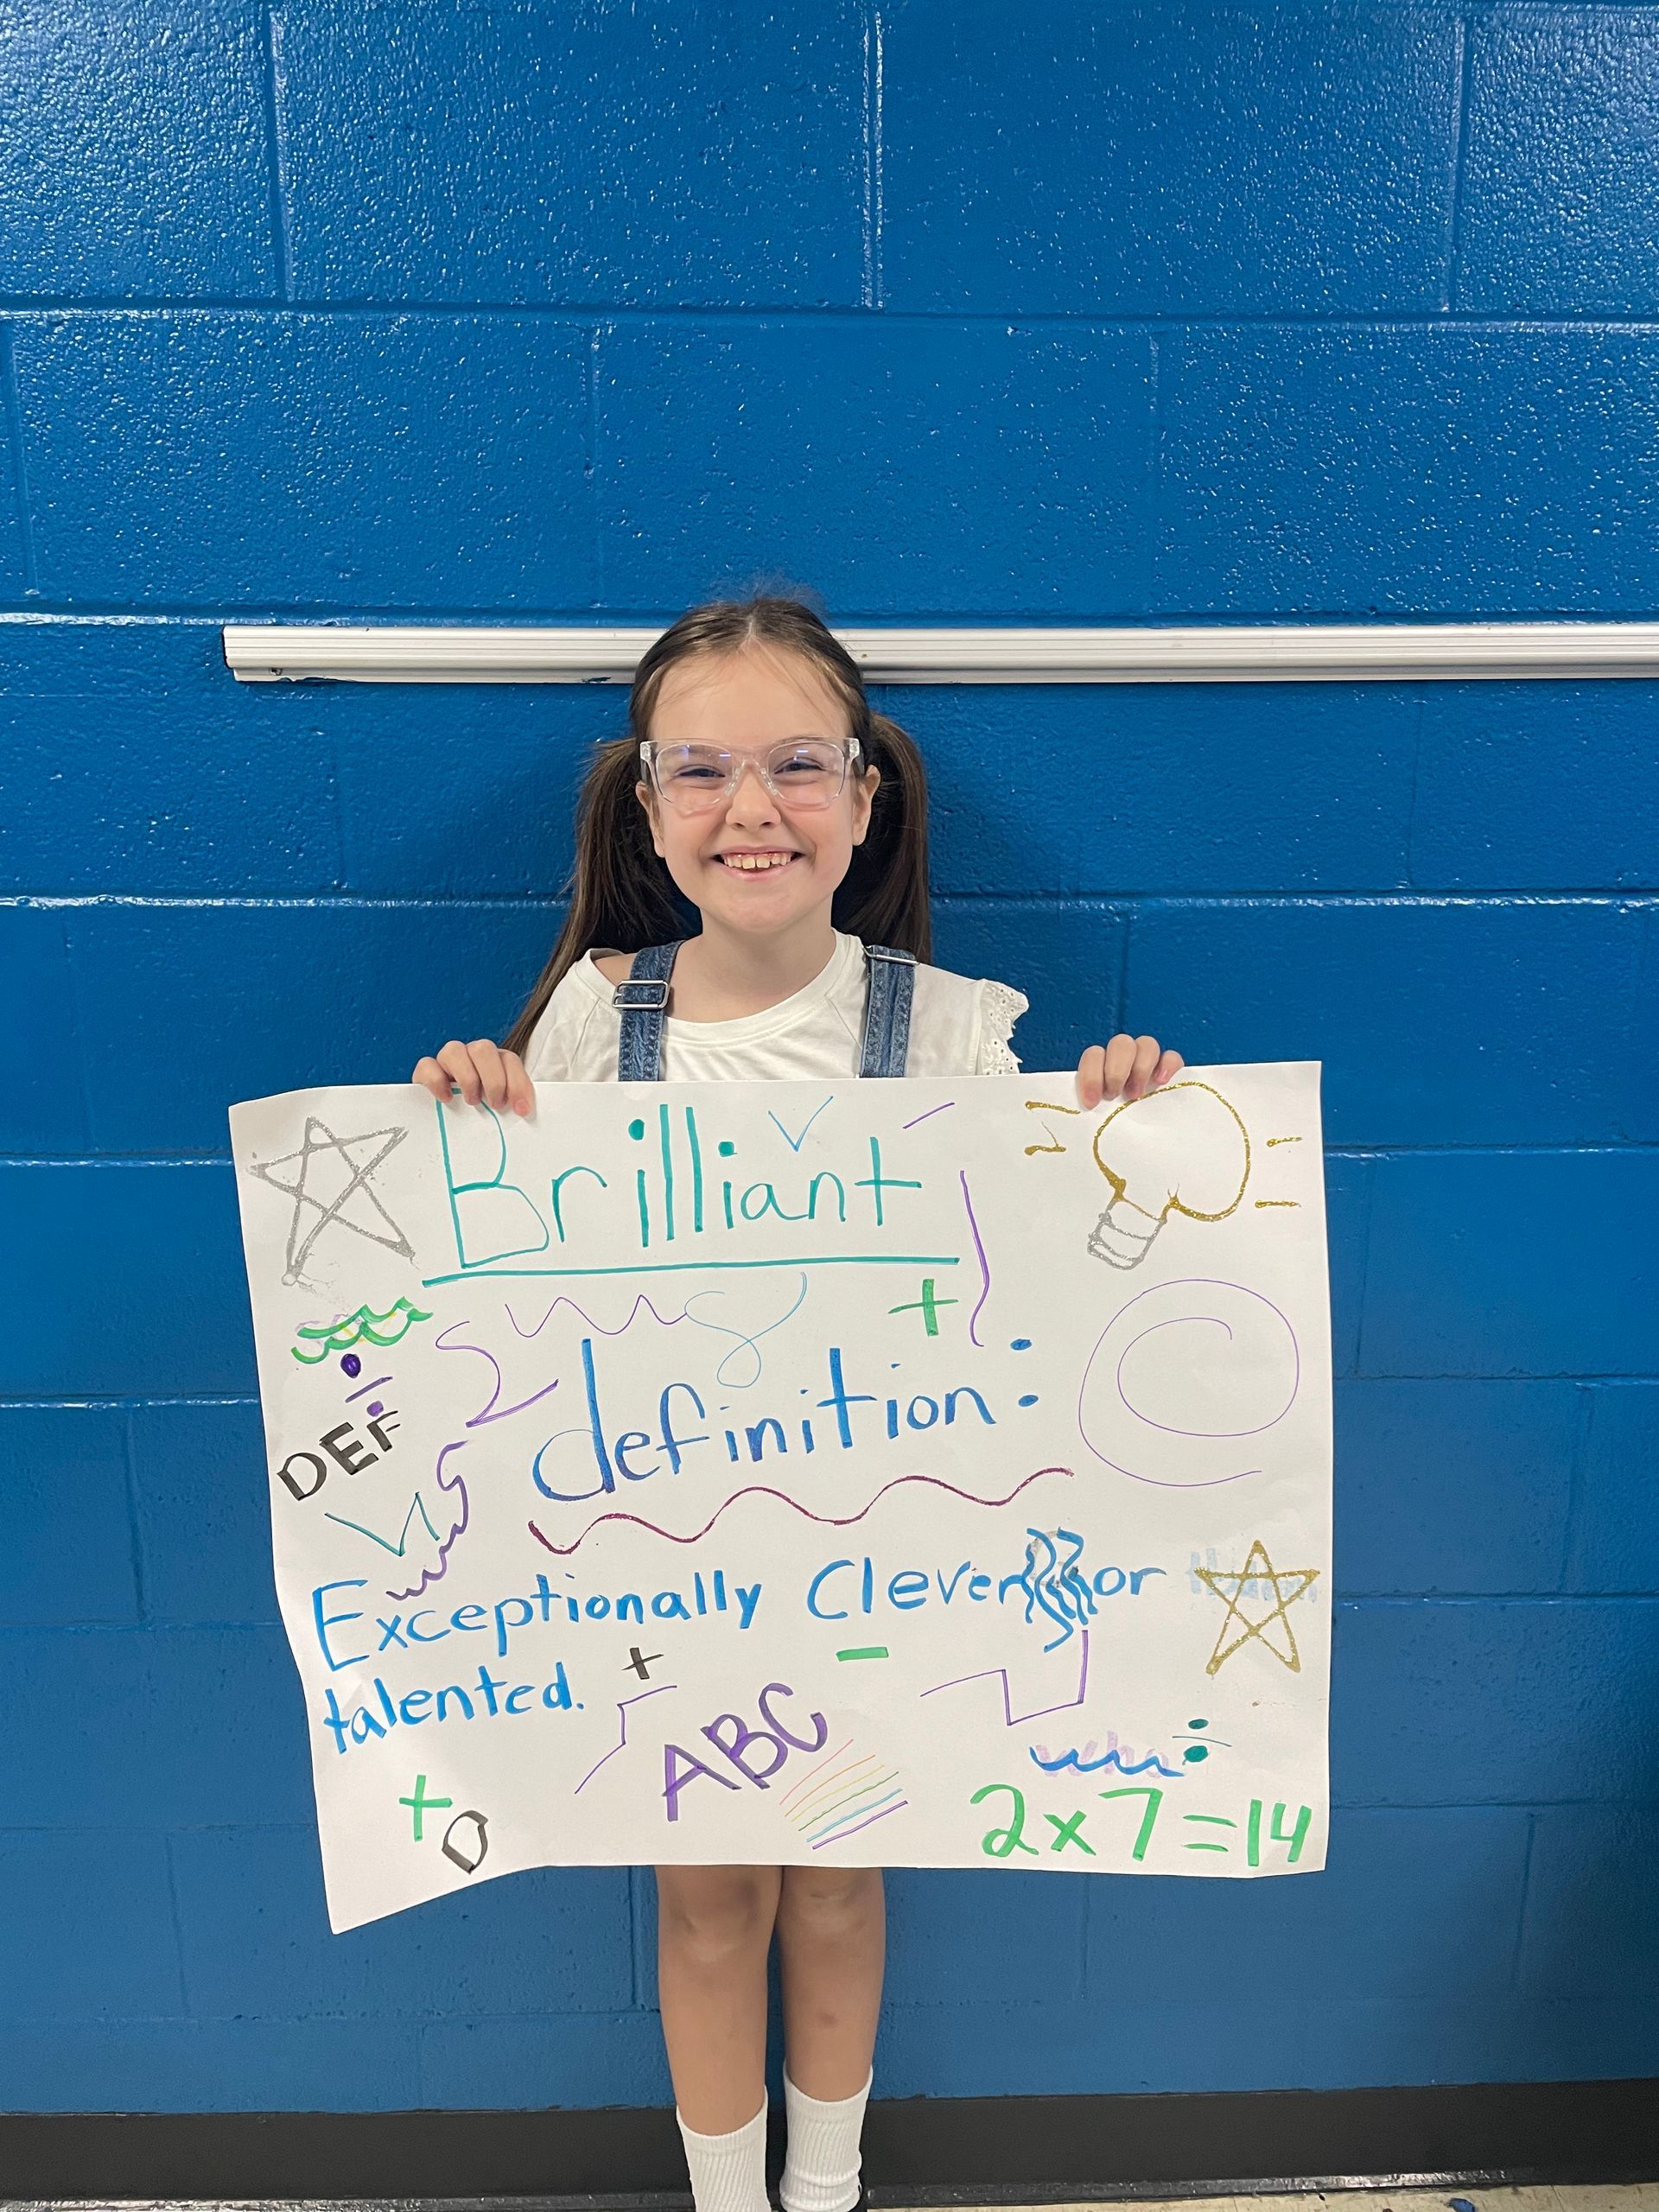 Brilliant
+
definition:
DEF
Exceptionally Clever or
talented.
+
-
ABC
÷
+
D
2x7=14